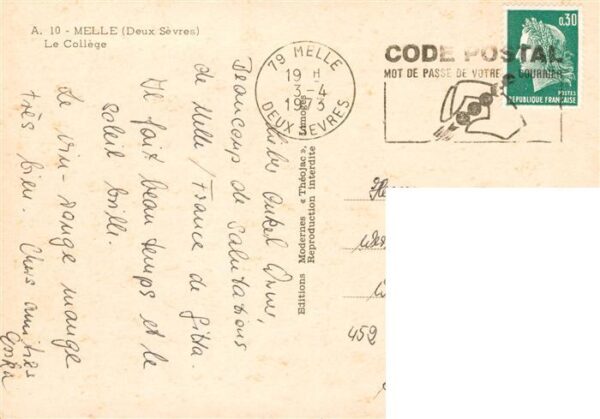 A. 10 - MELLE (Deux Sèvres)
Le Collège
79 MELLE
19 H
3-4
1973
DEUX SEVRES
CODE POSTAL
MOT DE PASSE DE VOTRE COURRIER
0,30
POSTES
REPUBLIQUE FRANÇAISE
Editions Modernes « Théojac », Limoges
Reproduction interdite
Lieber Onkel
Beaucoup de Salutations
de Melle / France de Gitta.
Il fait beau temps et le
soleil brille.
Le vin-rouge mange
très bien. Chers amitiés
459